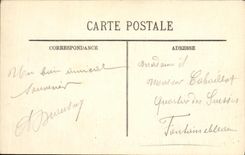 CARTE POSTALE
CORRESPONDANCE
ADRESSE
Un bon amical
souvenir
Madame et
Monsieur
Quartier des Suisses
Fontainebleau